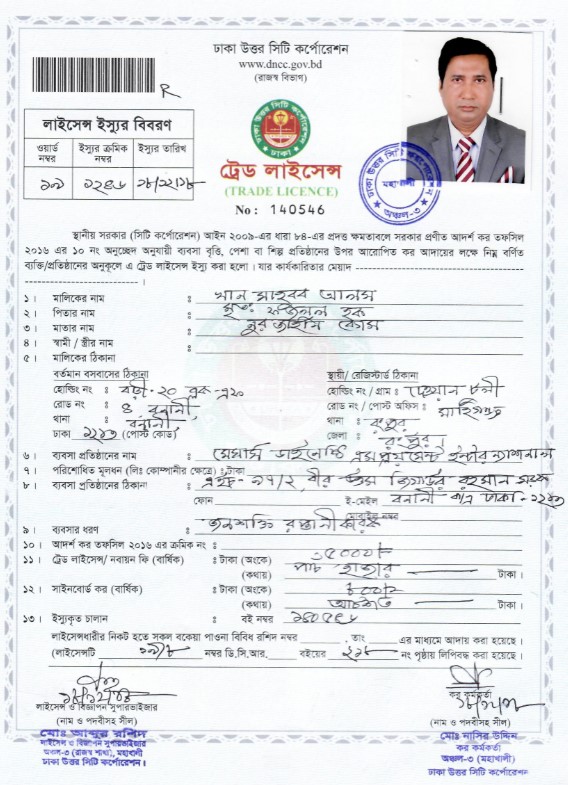 ঢাকা উত্তর সিটি কর্পোরেশন
www.dncc.gov.bd
(রাজস্ব বিভাগ)
R
লাইসেন্স ইস্যুর বিবরণ
ওয়ার্ড নম্বর
ইস্যুর ক্রমিক নম্বর
ইস্যুর তারিখ
ঢাকা উত্তর সিটি কর্পোরেশন
ঢাকা
ঢাকা উত্তর সিটি কর্পোরেশন
মহাখালী
অঞ্চল-৩
ট্রেড লাইসেন্স
(TRADE LICENCE)
No : 140546
স্থানীয় সরকার (সিটি কর্পোরেশন) আইন ২০০৯-এর ধারা ৮৪-এর প্রদত্ত ক্ষমতাবলে সরকার প্রণীত আদর্শ কর তফসিল
২০১৬ এর ১০ নং অনুচ্ছেদ অনুযায়ী ব্যবসা বৃত্তি, পেশা বা শিল্প প্রতিষ্ঠানের উপর আরোপিত কর আদায়ের লক্ষে নিম্ন বর্ণিত
ব্যক্তি/প্রতিষ্ঠানের অনুকূলে এ ট্রেড লাইসেন্স ইস্যু করা হলো। যার কার্যকারিতার মেয়াদ
১। মালিকের নাম : খান আলম
২। পিতার নাম : মৃত: হক
৩। মাতার নাম : নুর
৪। স্বামী / স্ত্রীর নাম :
৫। মালিকের ঠিকানা
বর্তমান বসবাসের ঠিকানা
হোল্ডিং নং : বাড়ী-২০ ব্লক-
রোড নং : ৪ বনানী,
থানা : বনানী
ঢাকা ১২১৩ (পোস্ট কোড)
স্থায়ী/ রেজিস্টার্ড ঠিকানা
হোল্ডিং নং / গ্রাম :
রোড নং / পোস্ট অফিস :
থানা : রংপুর
জেলা : রংপুর।
৬। ব্যবসা প্রতিষ্ঠানের নাম : মেসার্স ইন্টারন্যাশনাল
৭। পরিশোধিত মূলধন (লিঃ কোম্পানীর ক্ষেত্রে) : টাকা
৮। ব্যবসা প্রতিষ্ঠানের ঠিকানা : বীর উত্তম জিয়াউর রহমান সড়ক
ফোন ই-মেইল বনানী ঢাকা-১২১৩
মোবাইল নম্বর
৯। ব্যবসার ধরণ : জনশক্তি রপ্তানীকারক
১০। আদর্শ কর তফসিল ২০১৬ এর ক্রমিক নং :
১১। ট্রেড লাইসেন্স/ নবায়ন ফি (বার্ষিক) : টাকা (অংকে)
(কথায়) পাচ হাজার টাকা।
১২। সাইনবোর্ড কর (বার্ষিক) : টাকা (অংকে)
(কথায়) আটশত টাকা।
১৩। ইস্যুকৃত চালান : বই নম্বর
লাইসেন্সধারীর নিকট হতে সকল বকেয়া পাওনা বিবিধ রশিদ নম্বর , তাং এর মাধ্যমে আদায় করা হয়েছে।
(লাইসেন্সটি নম্বর ডি,সি,আর, বইয়ের নং পৃষ্ঠায় লিপিবদ্ধ করা হয়েছে।
লাইসেন্স ও বিজ্ঞাপন সুপারভাইজার
(নাম ও পদবীসহ সীল)
মোঃ আব্দুর রশিদ
লাইসেন্স ও বিজ্ঞাপন সুপারভাইজার
অঞ্চল-৩ (রাজস্ব শাখা), মহাখালী
ঢাকা উত্তর সিটি কর্পোরেশন।
কর কর্মকর্তা
(নাম ও পদবীসহ সীল)
মোঃ নাসির উদ্দিন
কর কর্মকর্তা
অঞ্চল-৩ (মহাখালী)
ঢাকা উত্তর সিটি কর্পোরেশন